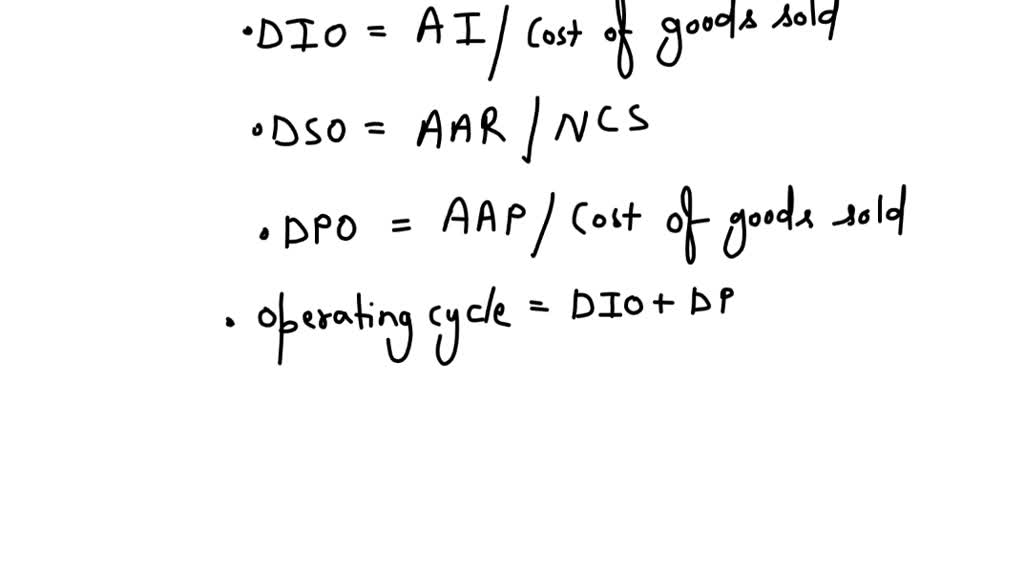 •DIO = AI/Cost of goods sold
•DSO = AAR/NCS
•DPO = AAP/Cost of goods sold
• operating cycle = DIO + DP